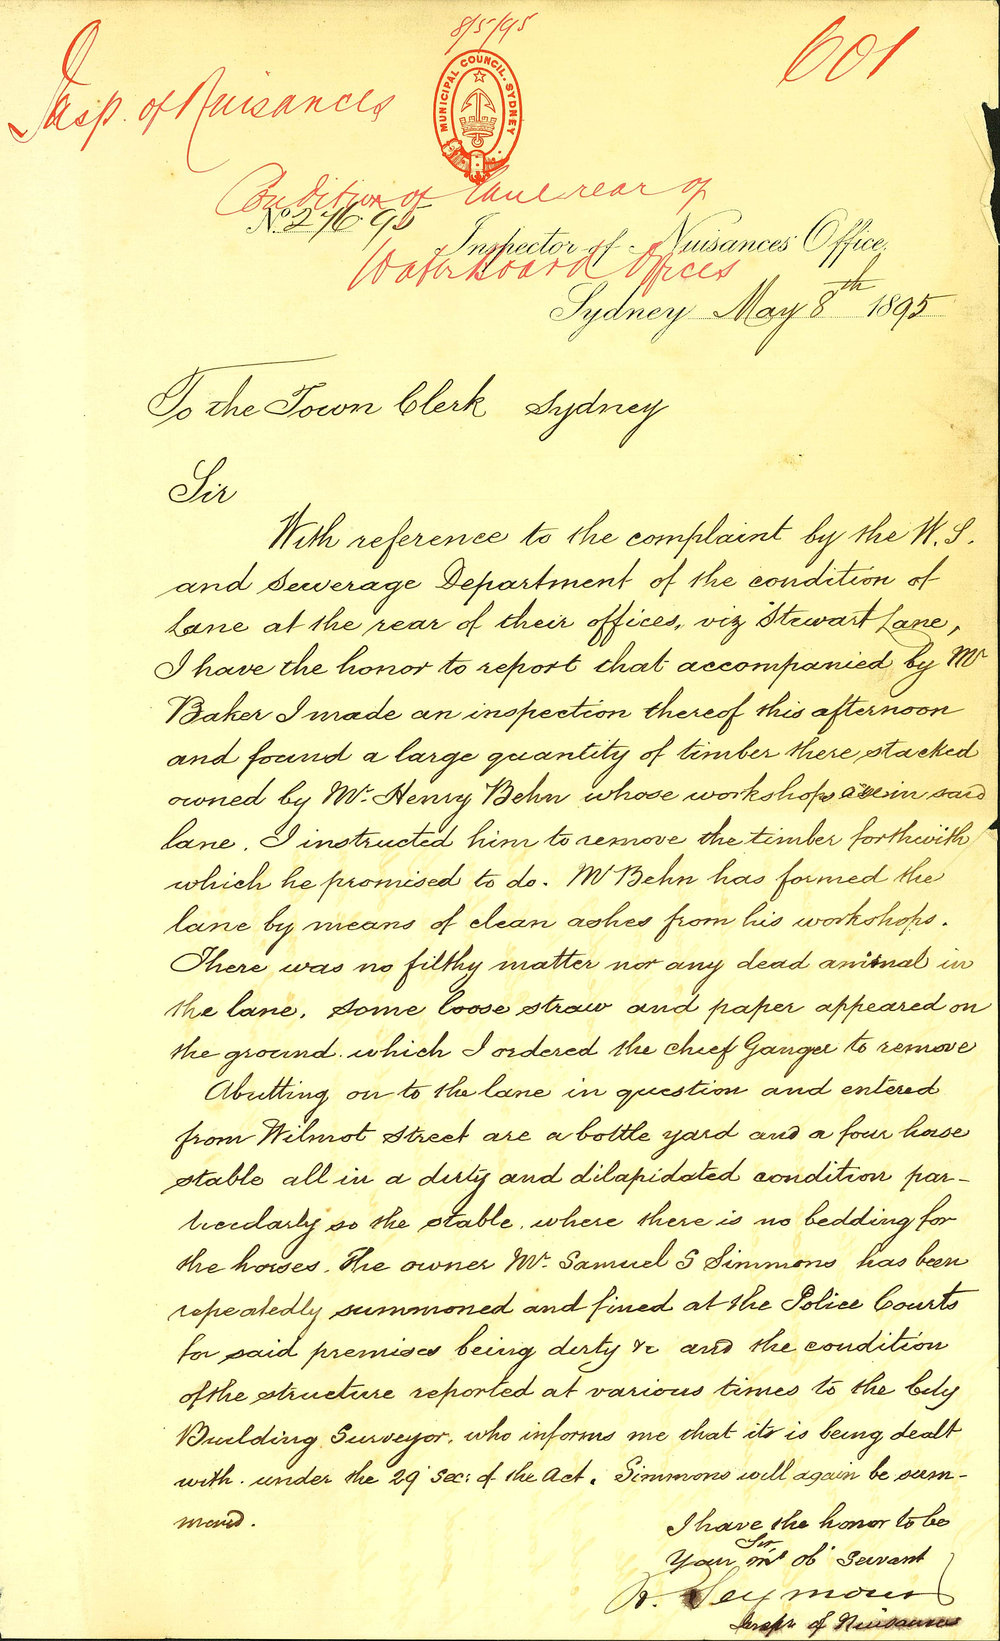 8/5/95
601
Insp. of Nuisances
MUNICIPAL COUNCIL. SYDNEY
Condition of Lane rear of
No. 276.95
Inspector of Nuisances Office,
Water Board Offices
Sydney May 8th 1895
To the Town Clerk Sydney
Sir
With reference to the complaint by the W. S.
and Sewerage Department of the condition of
lane at the rear of their offices, viz Stewart Lane,
I have the honor to report that accompanied by Mr
Baker I made an inspection thereof this afternoon
and found a large quantity of timber there stacked
owned by Mr. Henry Behn whose workshops are in said
lane. I instructed him to remove the timber forthwith
which he promised to do. Mr Behn has formed the
lane by means of clean ashes from his workshops.
There was no filthy matter nor any dead animal in
the lane, some loose straw and paper appeared on
the ground which I ordered the chief Ganger to remove
Abutting on to the lane in question and entered
from Wilmot Street are a bottle yard and a four horse
stable all in a dirty and dilapidated condition par-
ticularly so the stable, where there is no bedding for
the horses. The owner Mr. Samuel S Simmons has been
repeatedly summoned and fined at the Police Courts
for said premises being dirty &c and the condition
of the structure reported at various times to the City
Building Surveyor, who informs me that its is being dealt
with under the 29 Sec: of the Act. Simmons will again be sum-
moned.
I have the honor to be
Sir
Your mst obt Servant
R. Seymour
Inspr of Nuisances